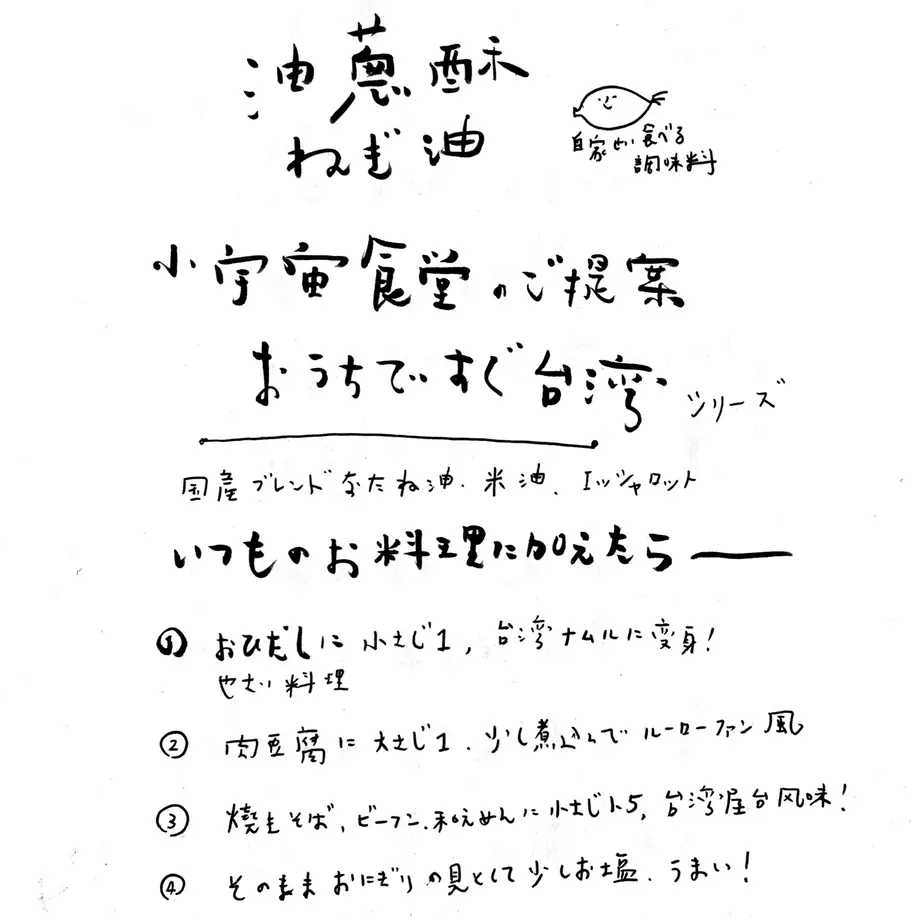 油蔥酥
ねぎ油
自家せい食べる
調味料
小宇宙食堂のご提案
おうちですぐ台湾シリーズ
国産ブレンドなたね油.米油、エシャロット
いつものお料理に加えたら——
① おひたしに小さじ1,台湾ナムルに変身!
やさい料理
② 肉豆腐に大さじ1.少し煮込んでルーローファン風
③ 焼きそば,ビーフン.和えめんに小さじ1.5,台湾屋台风味!
④ そのままおにぎりの具として少しお塩.うまい!